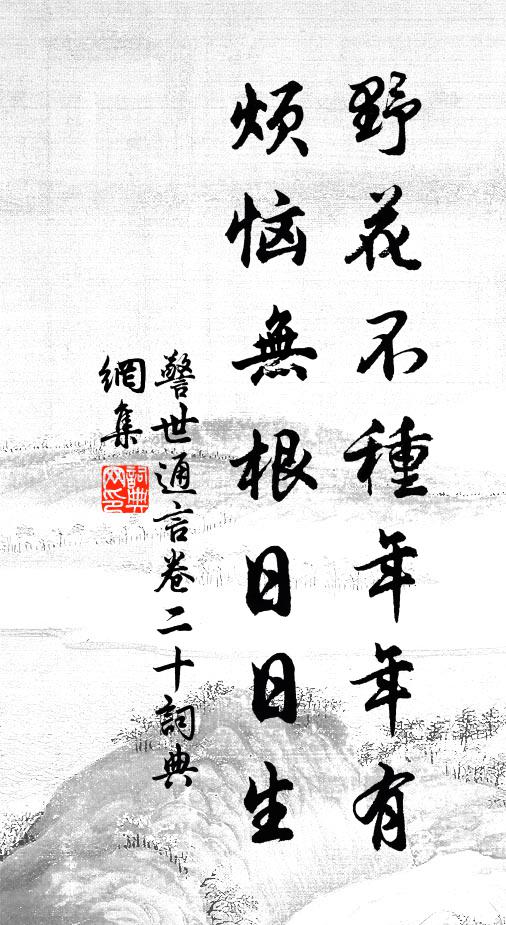 野花不種年年有
煩惱無根日日生
警世通言卷二十詞典
網集
詞典
网印